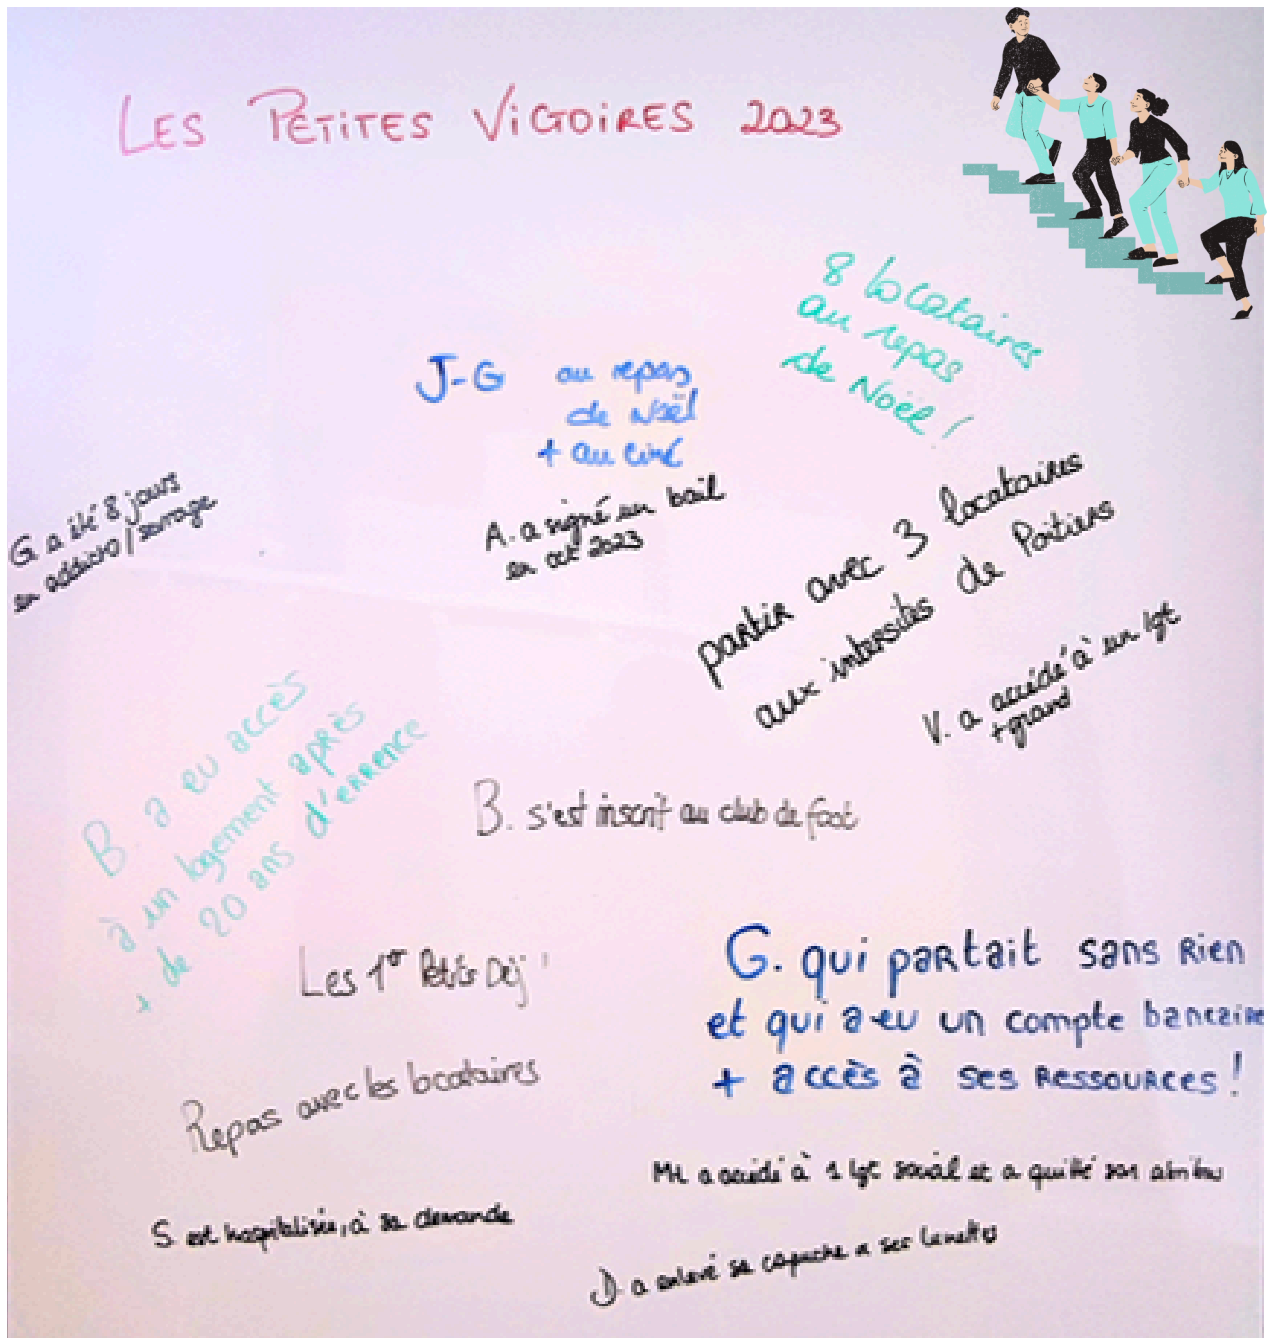 LES PETITES VICTOIRES 2023
8 locataires
au repas
de Noël !
J-G au repas
de Noël
+ au ciné
G a été 8 jours
en addicto / sevrage
A. a signé un bail
en oct 2023
partir avec 3 locataires
aux intersites de Poitiers
V. a accédé à un lgt
+ grand
B. a eu accès
à un logement après
+ de 20 ans d'errence
B. s'est inscrit au club de foot
Les 1er Petits Dej !
G. qui partait sans rien
et qui a eu un compte bancaire
+ accès à ses ressources !
Repas avec les locataires
a accédé à 1 lgt social et a quitté son abribus
S est hospitalisée, à sa demande
D a enlevé sa capuche ses lunettes